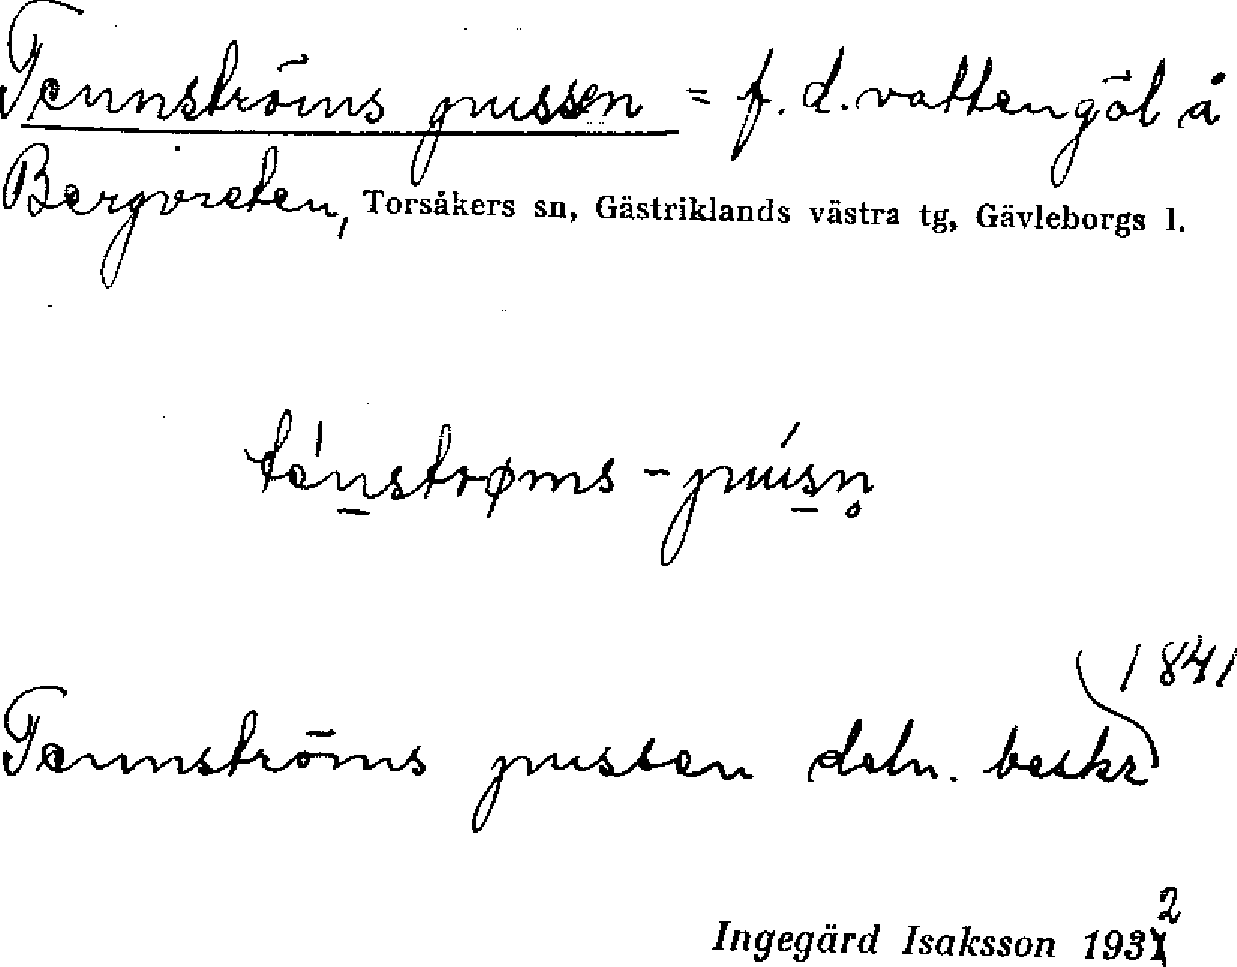 Tennströms pussen = f.d. vattengöl å
Bergvreten, Torsåkers sn, Gästriklands västra tg, Gävleborgs l.
tén̲strøms - puús̲n̥
1841
Tennströms pussen deln. beskr
Ingegärd Isaksson 1932